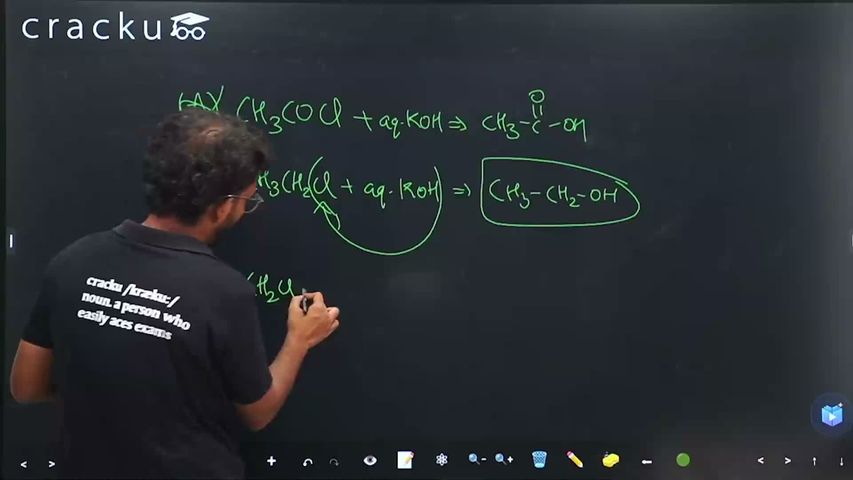 cracku
(A) CH₃COCl + aq.KOH ⇒ CH₃-C-OH
O
H₃CH₂Cl + aq.KOH ⇒ CH₃-CH₂-OH
cracku /kræku:/
noun. a person who
easily aces exams
CH₂Cl